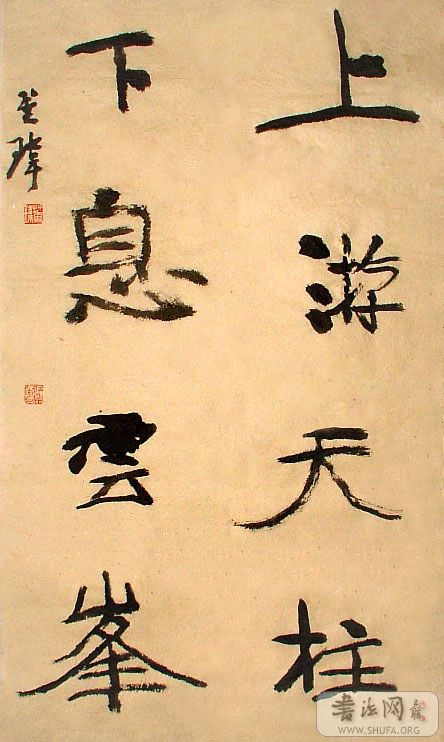 上游天柱
下息雲峯
书法网
WWW.SHUFA.ORG